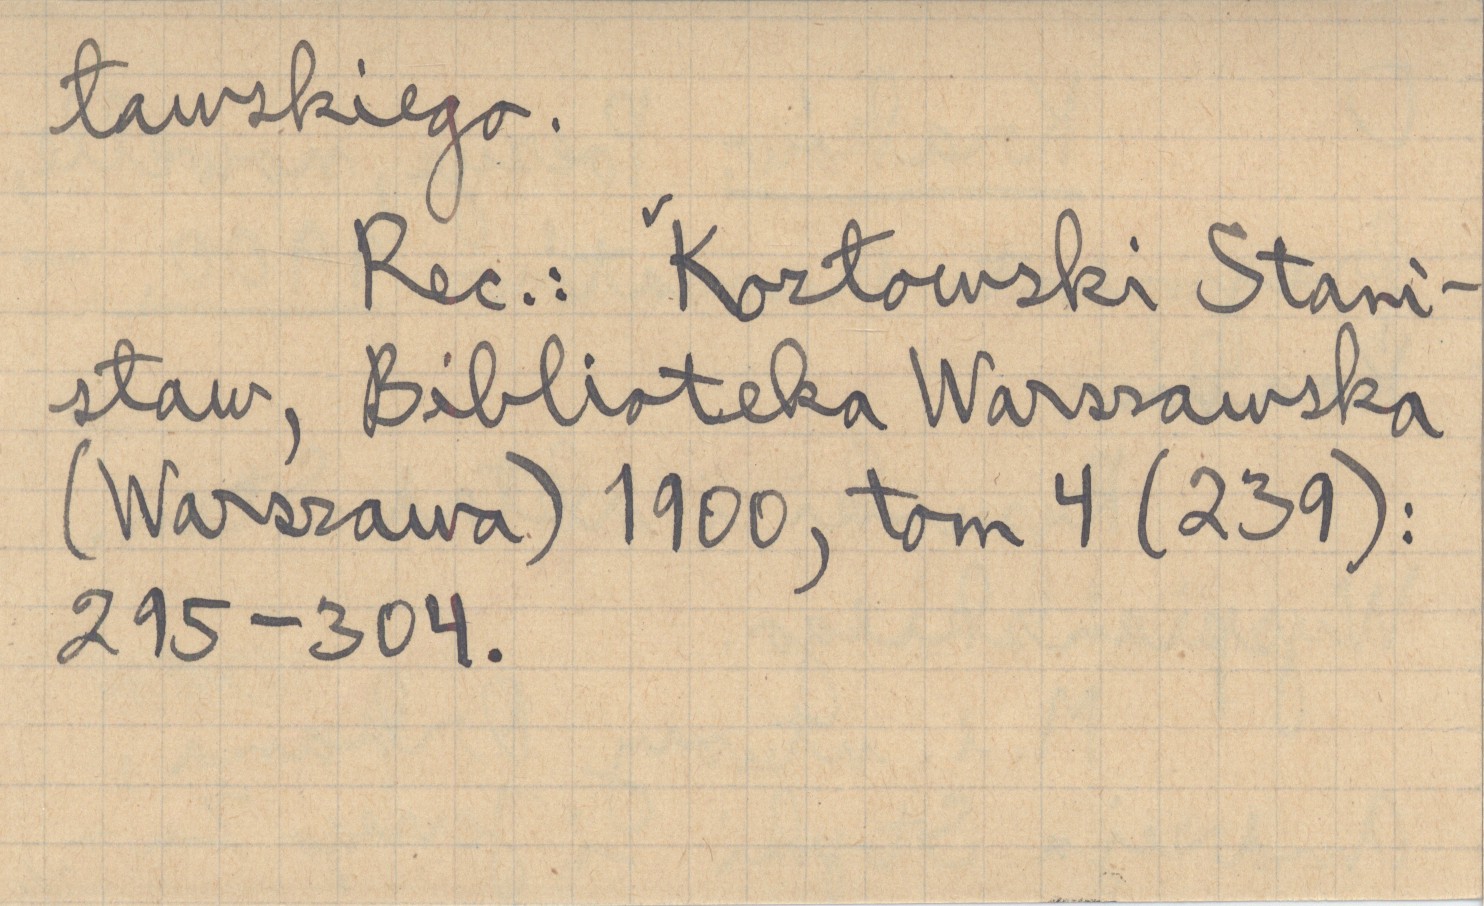 ławskiego.
Rec.: ˇKozłowski Stani-
sław, Biblioteka Warszawska
(Warszawa) 1900, tom 4 (239):
295-304.